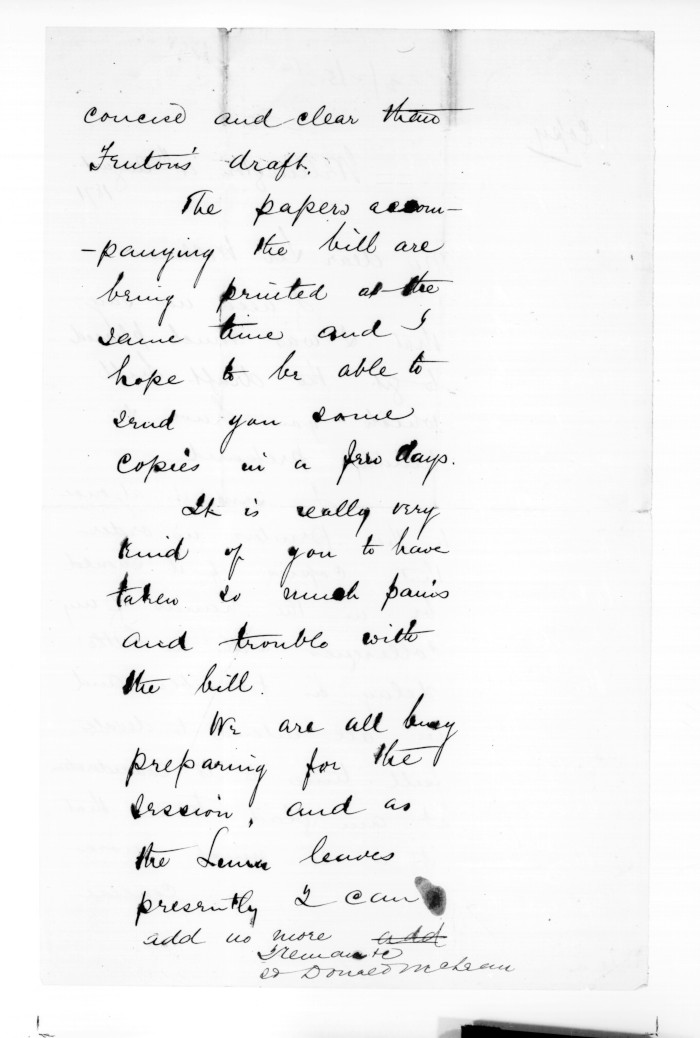 concise and clear than
Fenton's draft.
The papers accom-
-panying the bill are
being printed at the
same time and I
hope to be able to
send you some
copies in a few days.
It is really very
kind of you to have
taken so much pains
and trouble with
the bill.
We are all busy
preparing for the
session, and as
the Luna leaves
presently I can
add no more add
I remain &c
sd Donald McLean